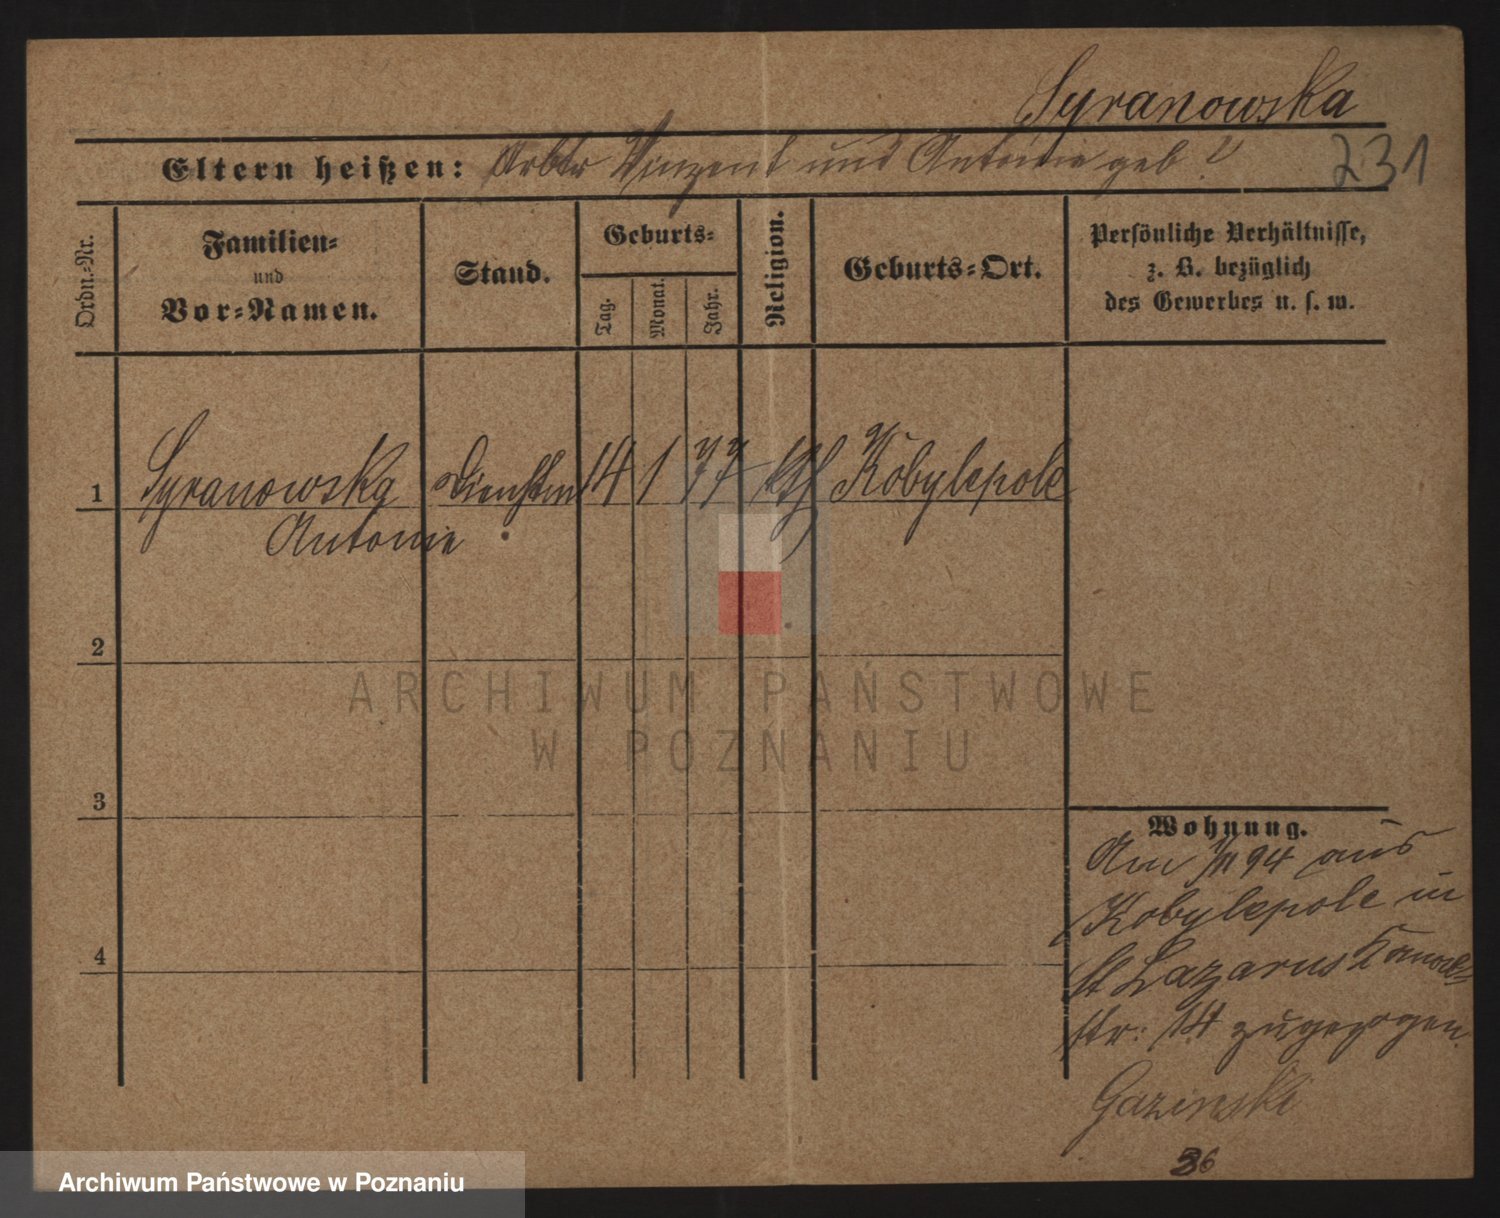 Syranowska
Eltern heißen: Arbtr Vinzent und Antonie geb ?
231
Ordn.=Nr.
Familien=
und
Vor=Namen.
Stand.
Geburts=
Tag.
Monat.
Jahr.
Religion.
Geburts=Ort.
Persönliche Verhältnisse,
z. B. bezüglich
des Gewerbes u. s. w.
1 Syranowska Dienstm 14 1 77 kth Kobylepole
Antonie
2
3
4
Wohnung.
Am 94 aus
Kobylepole in
St Lazarus
str: 14 zugezogen.
Gazinski
36
ARCHIWUM PAŃSTWOWE
W POZNANIU
Archiwum Państwowe w Poznaniu